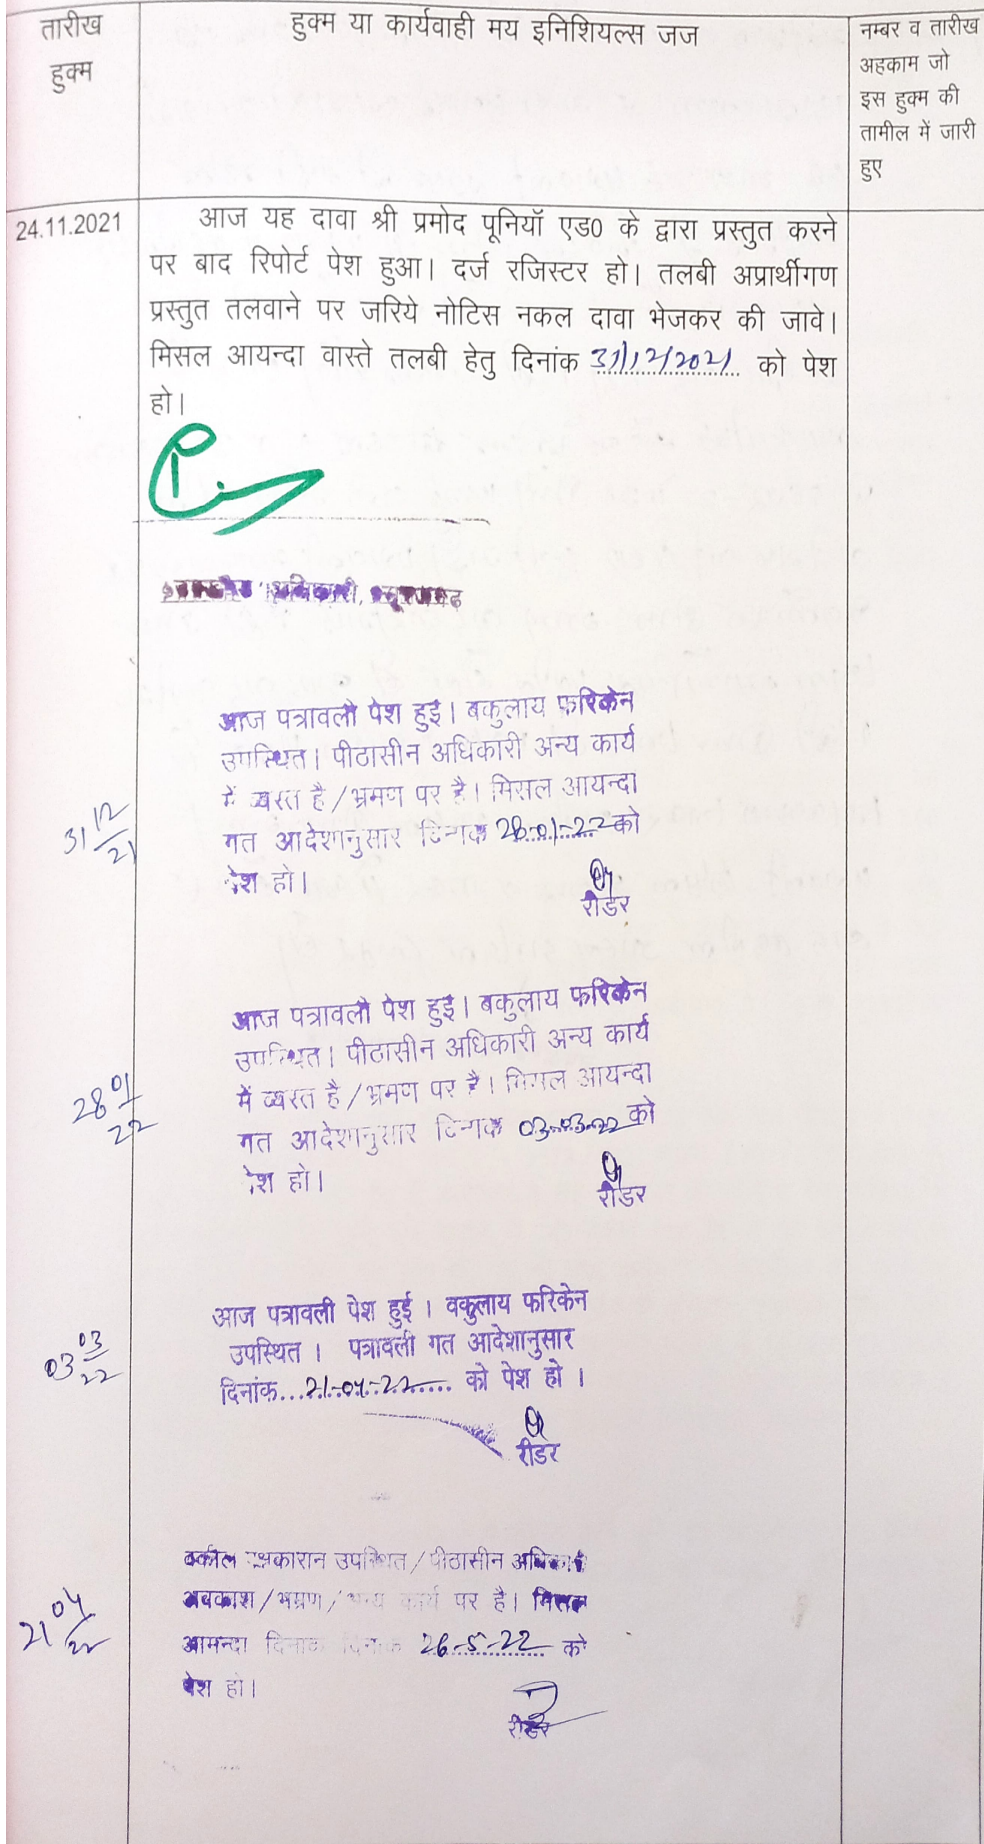 तारीख
हुक्म
हुक्म या कार्यवाही मय इनिशियल्स जज
नम्बर व तारीख
अहकाम जो
इस हुक्म की
तामील में जारी
हुए
24.11.2021
आज यह दावा श्री प्रमोद पूनियॉ एड0 के द्वारा प्रस्तुत करने
पर बाद रिपोर्ट पेश हुआ। दर्ज रजिस्टर हो। तलबी अप्रार्थीगण
प्रस्तुत तलवाने पर जरिये नोटिस नकल दावा भेजकर की जावे।
मिसल आयन्दा वास्ते तलबी हेतु दिनांक 31/12/2021 को पेश
हो।
अधिकारी,
31 12/21
आज पत्रावली पेश हुई। बकुलाय फरिकेन
उपस्थित। पीठासीन अधिकारी अन्य कार्य
में व्यस्त है/भ्रमण पर है। मिसल आयन्दा
गत आदेशानुसार दिनांक 28-01-22 को
पेश हो।
रीडर
28 01/22
आज पत्रावली पेश हुई। बकुलाय फरिकेन
उपस्थित। पीठासीन अधिकारी अन्य कार्य
में व्यस्त है/भ्रमण पर है। मिसल आयन्दा
गत आदेशानुसार दिनांक 03-03-22 को
पेश हो।
रीडर
03 03/22
आज पत्रावली पेश हुई। वकुलाय फरिकेन
उपस्थित। पत्रावली गत आदेशानुसार
दिनांक...21-04-22.... को पेश हो।
रीडर
21 04/22
वकील पक्षकारान उपस्थित/पीठासीन अधिकारी
अवकाश/भम्रण/अन्य कार्य पर है। मिसल
आमन्दा दिनांक दिनांक 26-5-22 को
पेश हो।
रीडर